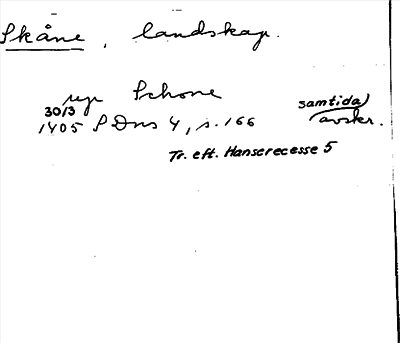 Skåne, landskap.
Schone
30/3 samtida
1405 SDns 4, s. 166 avskr.
Tr. eft. Hanserecesse 5